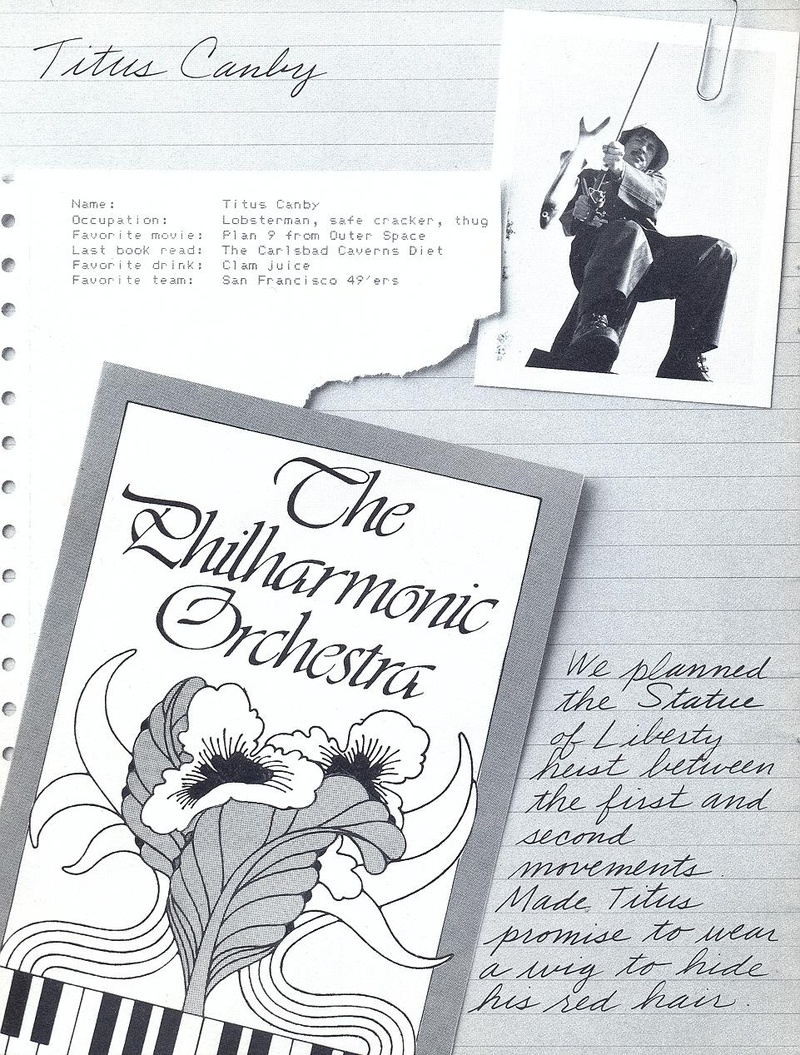 Titus Canby
Name: Titus Canby
Occupation: Lobsterman, safe cracker, thug
Favorite movie: Plan 9 from Outer Space
Last book read: The Carlsbad Caverns Diet
Favorite drink: Clam juice
Favorite team: San Francisco 49'ers
The
Philharmonic
Orchestra
We planned
the Statue
of Liberty
heist between
the first and
second
movements.
Made Titus
promise to wear
a wig to hide
his red hair.